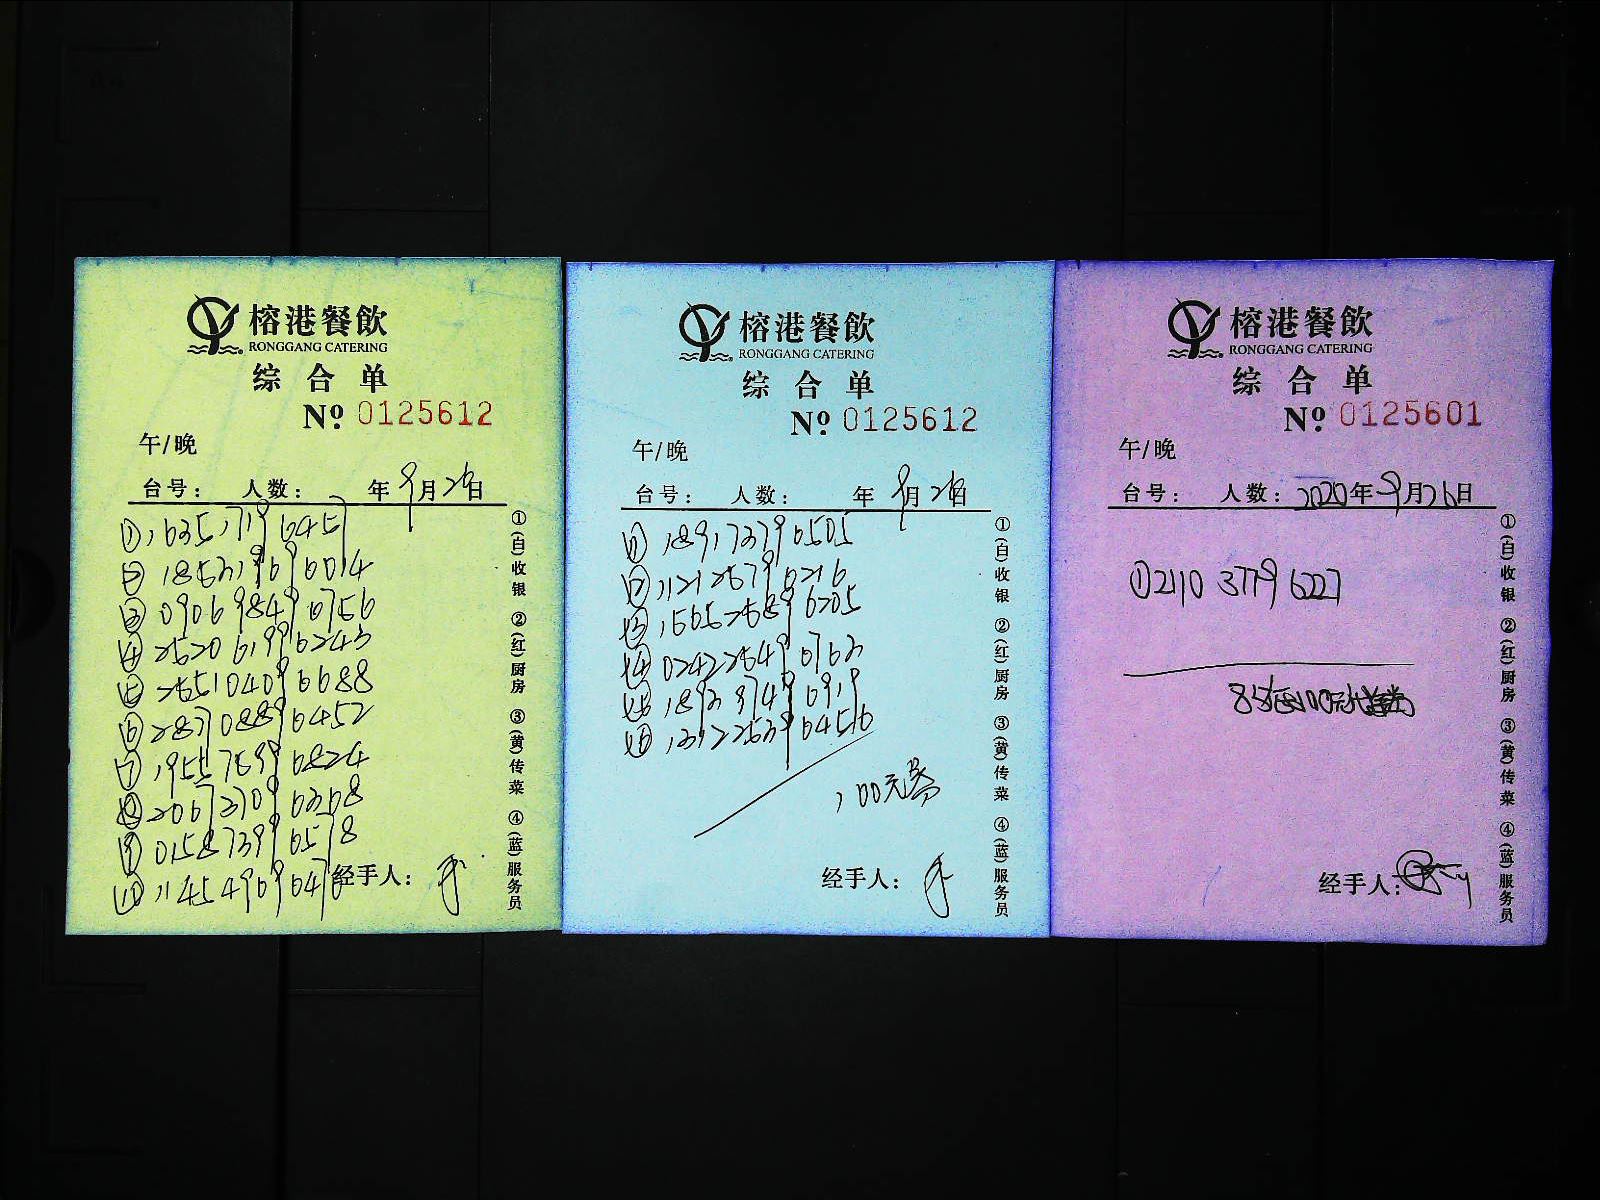 榕港餐飲
RONGGANG CATERING
综合单
№ 0125612
午/晚
台号: 人数: 年9月26日
① 1635 1719 6457
② 1853 1969 6014
③ 0906 9849 6756
④ 2620 6199 6243
⑤ 2651 0409 6688
⑥ 2837 0889 6452
⑦ 1955 7699 6824
⑧ 2067 3709 6368
⑨ 0158 7399 6578
⑩ 1145 4969 6478
经手人:
①(白)收银 ②(红)厨房 ③(黄)传菜 ④(蓝)服务员
榕港餐飲
RONGGANG CATERING
综合单
№ 0125612
午/晚
台号: 人数: 年9月26日
⑪ 1891 7379 6505
⑫ 1121 2679 6216
⑬ 1565 2689 6205
⑭ 0242 2649 6763
⑮ 1893 9749 6919
⑯ 1392 2539 6456
100元券
经手人:
①(白)收银 ②(红)厨房 ③(黄)传菜 ④(蓝)服务员
榕港餐飲
RONGGANG CATERING
综合单
№ 0125601
午/晚
台号: 人数: 2020年9月26日
① 2110 3779 6227
100元
经手人:
①(白)收银 ②(红)厨房 ③(黄)传菜 ④(蓝)服务员